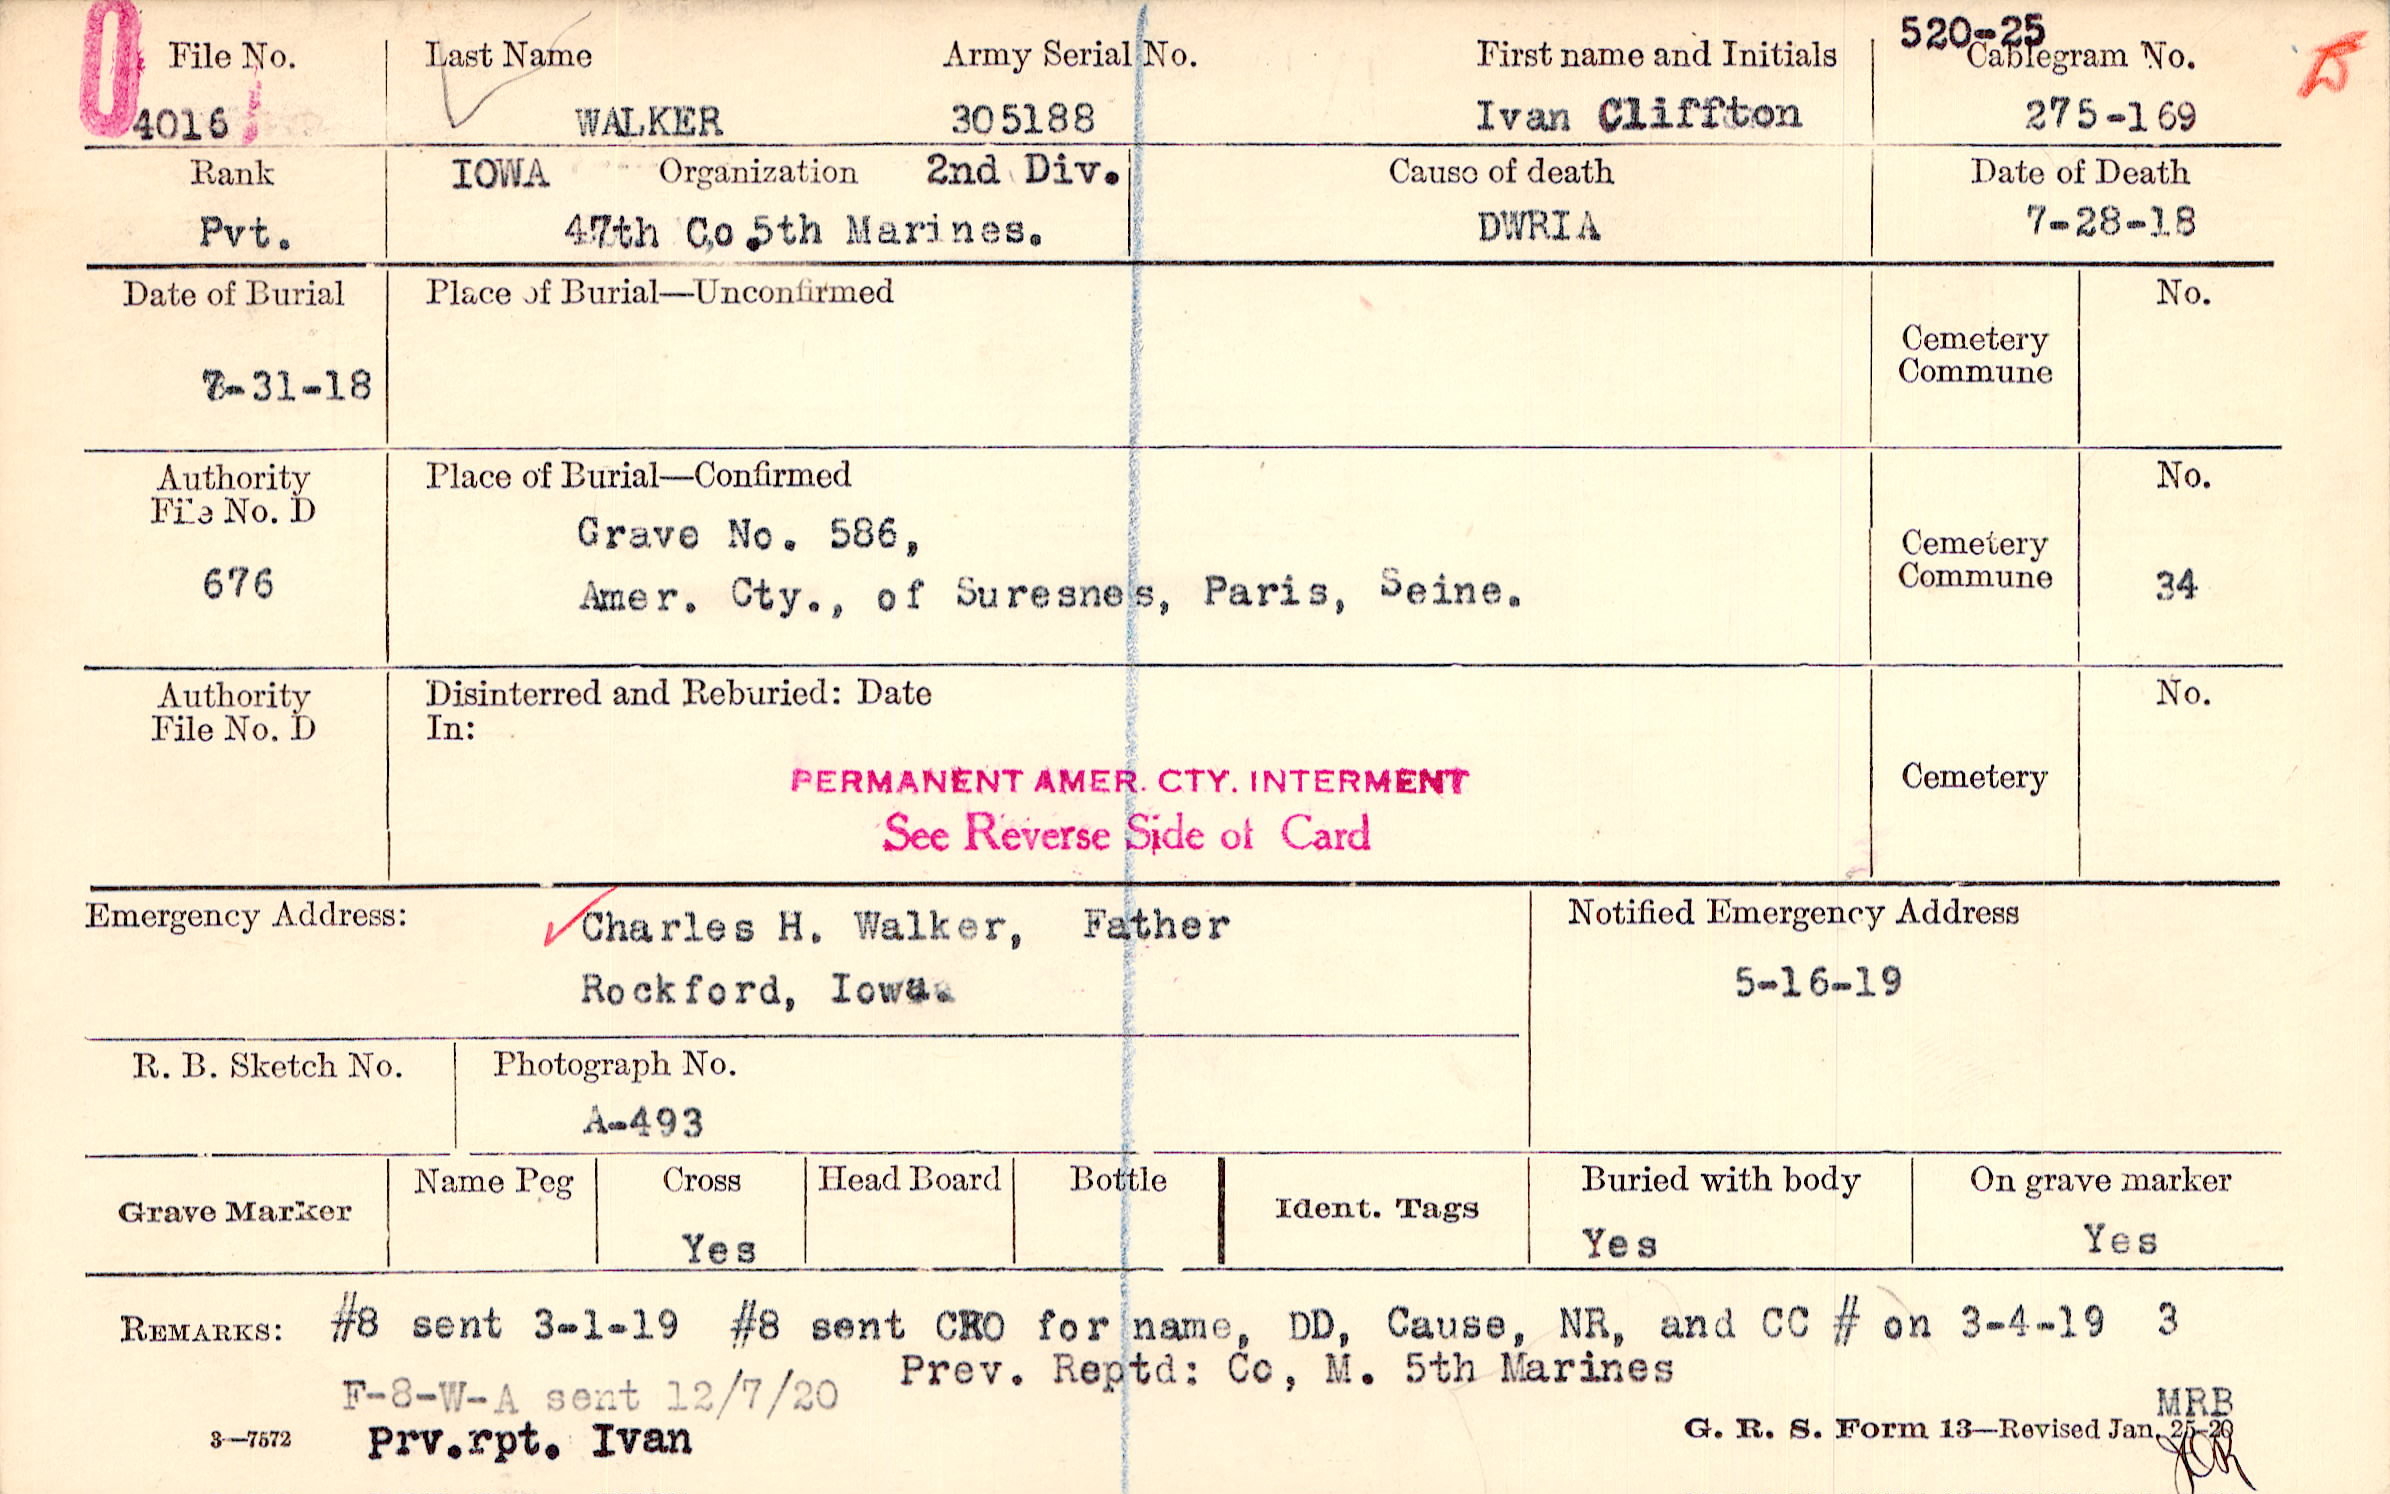 520-25
File No. Last Name Army Serial No. First name and Initials Cablegram No.
4016 WALKER 305188 Ivan Cliffton 275-169
Rank IOWA Organization 2nd Div. Cause of death Date of Death
Pvt. 47th Co. 5th Marines. DWRIA 7-28-18
Date of Burial Place of Burial—Unconfirmed No.
Cemetery
Commune
7-31-18
Authority Place of Burial—Confirmed No.
File No. D
Grave No. 586,
Cemetery
676 Commune 34
Amer. Cty., of Suresnes, Paris, Seine.
Authority Disinterred and Reburied: Date No.
File No. D In:
PERMANENT AMER. CTY. INTERMENT Cemetery
See Reverse Side of Card
Emergency Address: Charles H. Walker, Father Notified Emergency Address
Rockford, Iowa. 5-16-19
R. B. Sketch No. Photograph No.
A-493
Grave Marker Name Peg Cross Head Board Bottle Ident. Tags Buried with body On grave marker
Yes Yes Yes
REMARKS: #8 sent 3-1-19 #8 sent CRO for name, DD, Cause, NR, and CC # on 3-4-19 3
Prev. Reptd: Co, M. 5th Marines
F-8-W-A sent 12/7/20
MRB
3—7572 Prv.rpt. Ivan G. R. S. Form 13—Revised Jan. 25-20